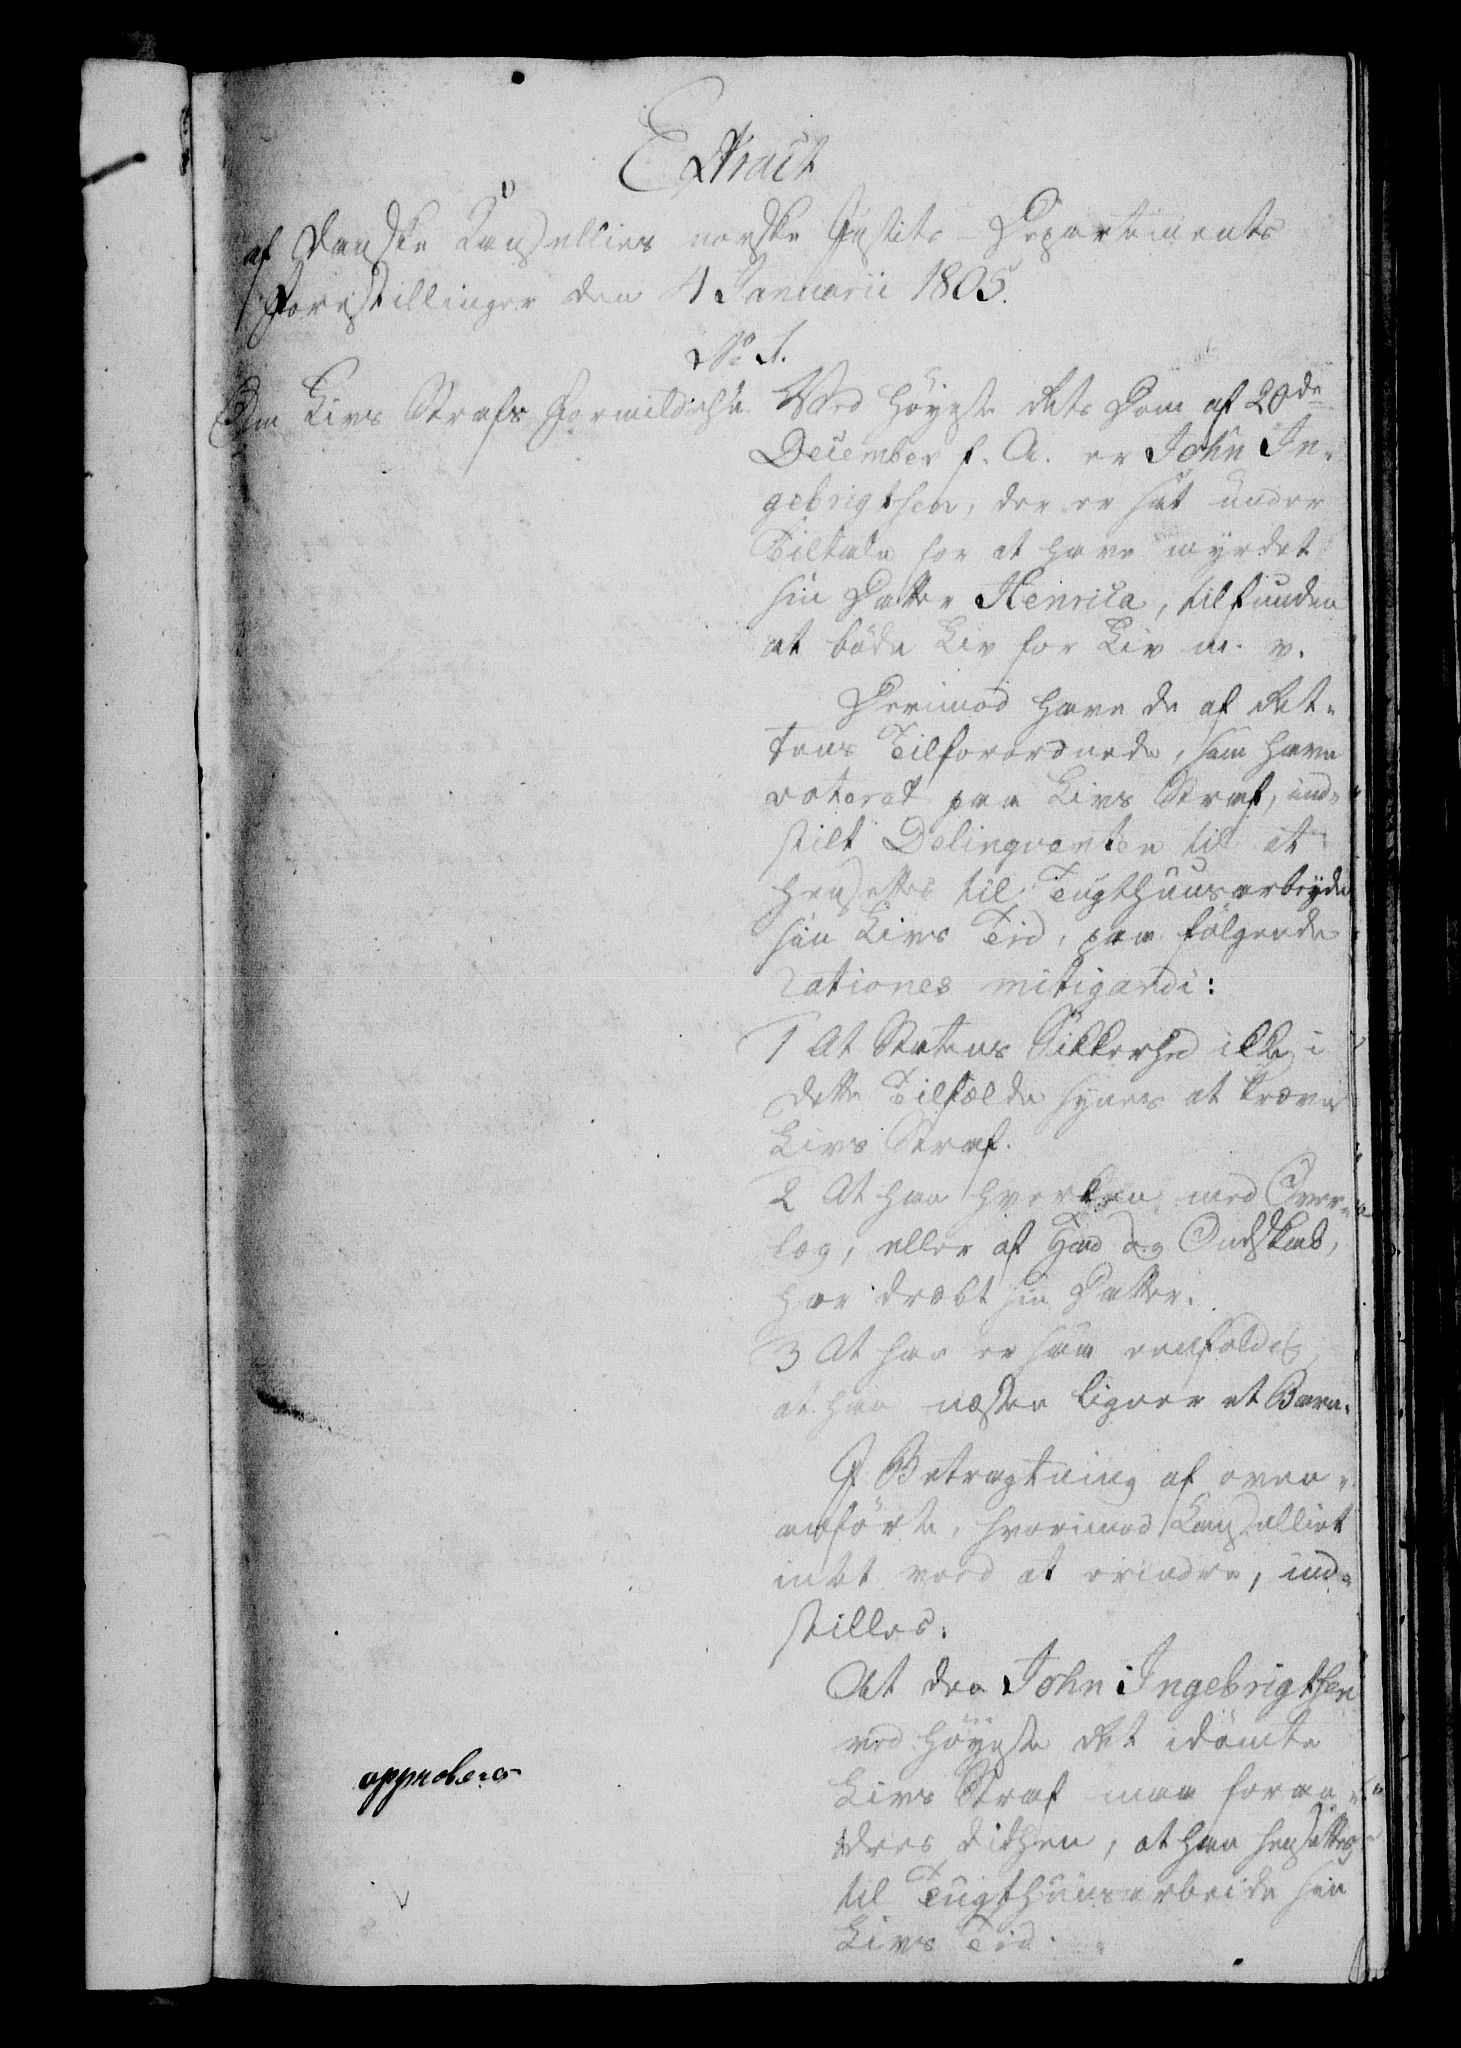 Extract
af Danske Kancelliets norske Justits-Departements
Forestillinger den 4 Januarii 1805.
No 1.
Om Livs Strafs Formildelse
Ved Høyeste Rets Dom af 20de
December f. A. er John In-
gebrigtsen, der er sat under
Tiltale for at have myrdet
sin Datter Henrica, tilfunden
at bøde Liv for Liv m. v.
Derimod have de af Ret-
tens Tilforordnede, som have
voteret paa Livs Straf, ind-
stilt Delinqventen til at
hensettes til Tugthuusarbeyde
sin Livs Tid, paa følgende
rationes mitigandi:
1 At Statens Sikkerhed ikke i
dette Tilfælde synes at kræve
Livs Straf.
2 At han hverken med Over-
læg, eller af Had og Ondskab,
har dræbt sin Datter.
3 At han er saa eenfoldig,
at han næsten ligner et Barn.
I Betragtning af oven-
anførte, hvorimod Cancelliet
intet veed at erindre, ind-
stilles:
At den John Ingebrigtsen
ved Høyeste Ret idømte
Livs Straf maa foran-
dres dithen, at han hensættes
til Tugthuusarbeide sin
Livs Tid.
approberes